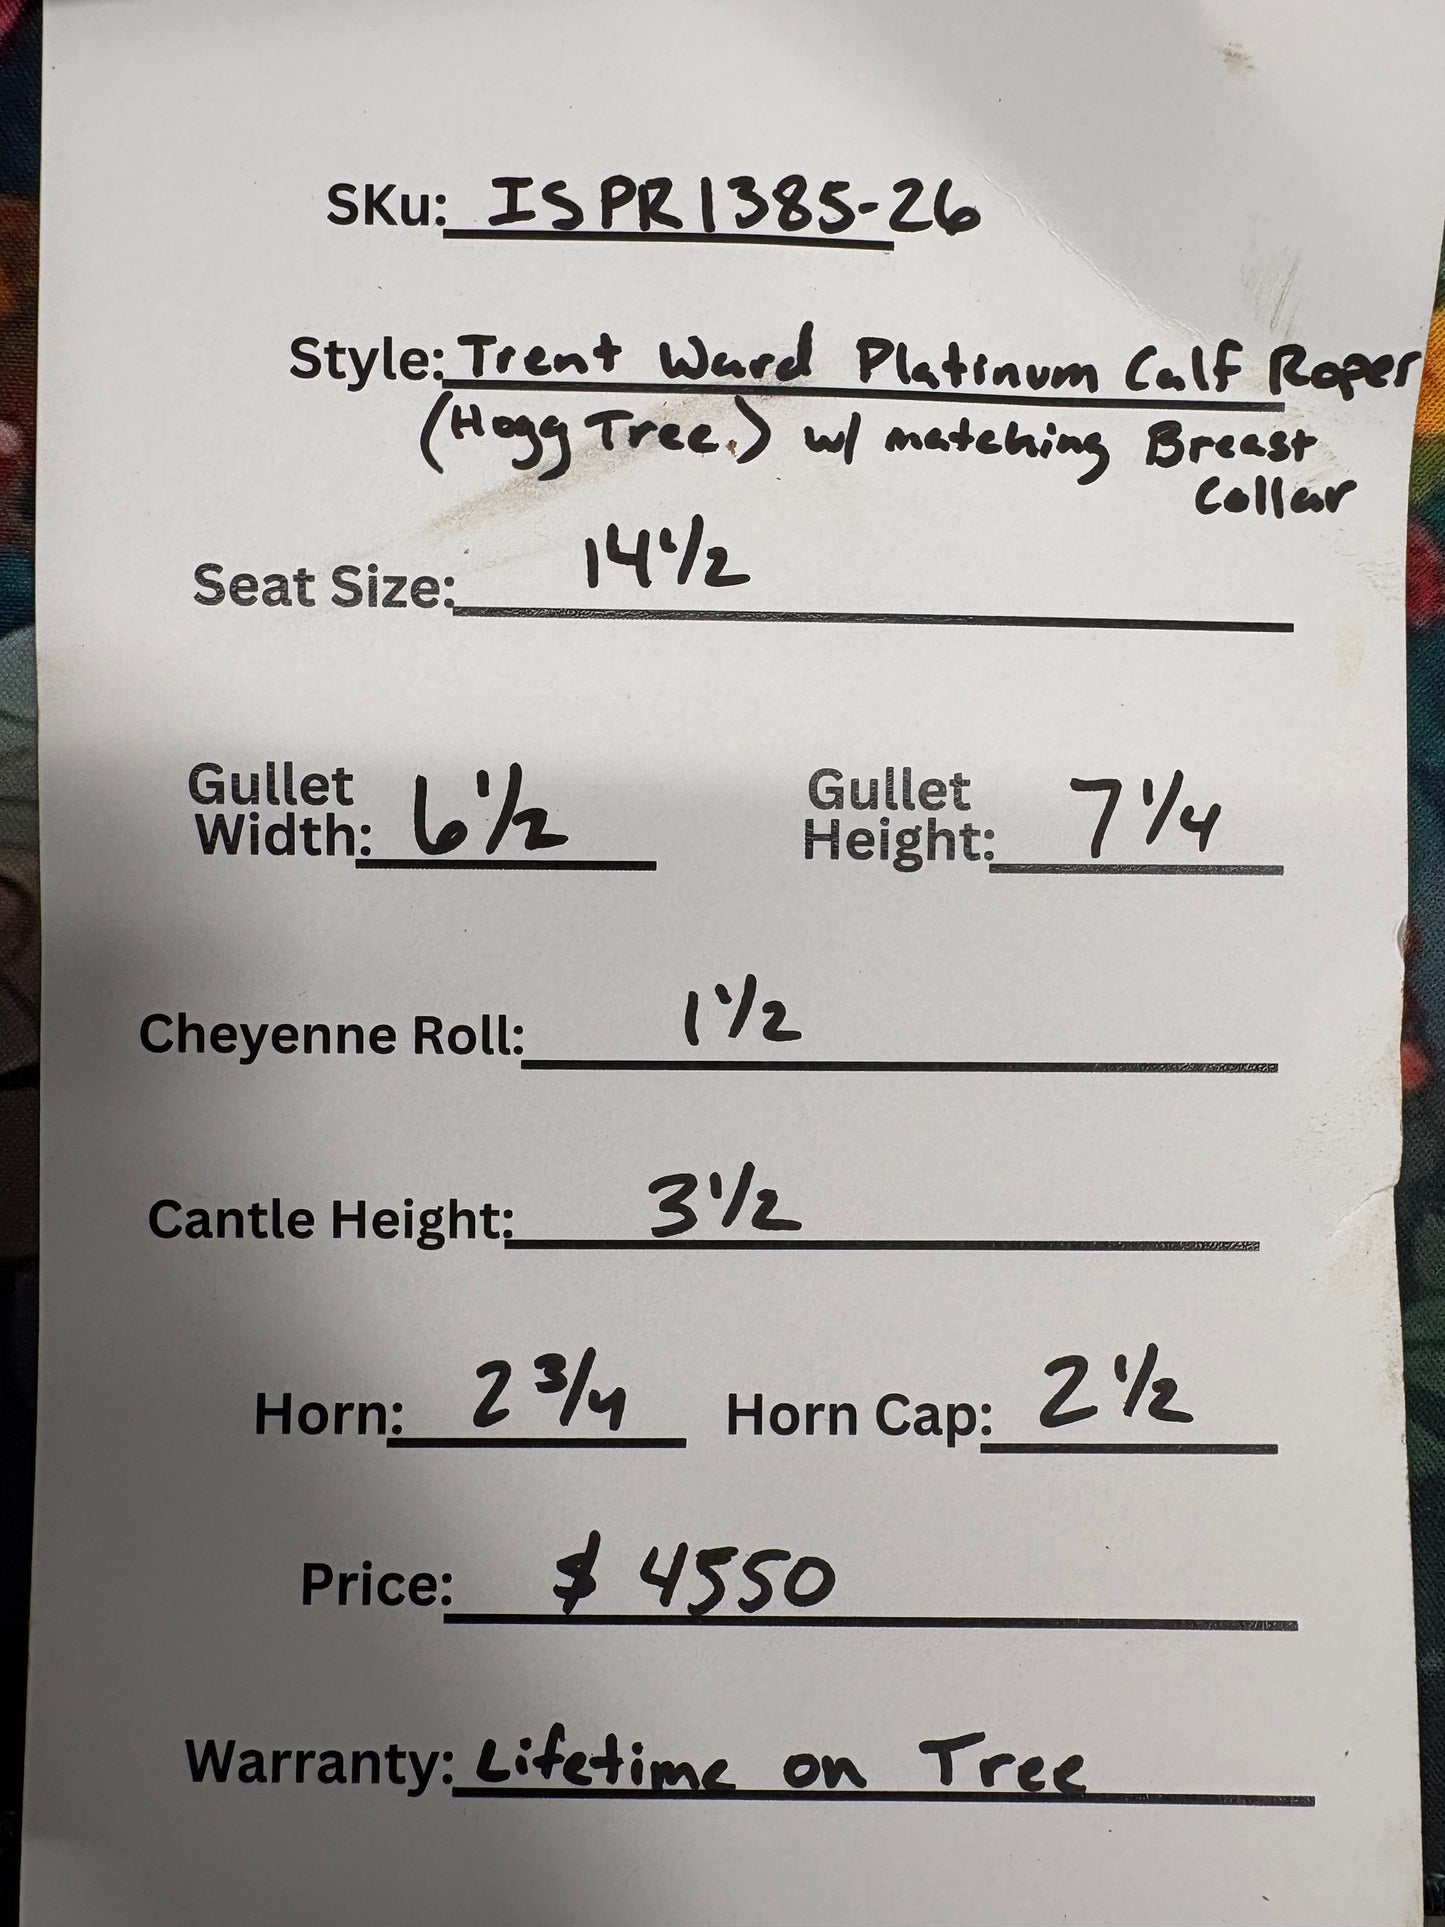 SKu: ISPR1385-26
Style: Trent Ward Platinum Calf Roper
(Hogg Tree.) w/ matching Breast
Collar
Seat Size: 14 1/2
Gullet Width: 6 1/2 Gullet Height: 7 1/4
Cheyenne Roll: 1 1/2
Cantle Height: 3 1/2
Horn: 2 3/4 Horn Cap: 2 1/2
Price: $ 4550
Warranty: Lifetime on Tree